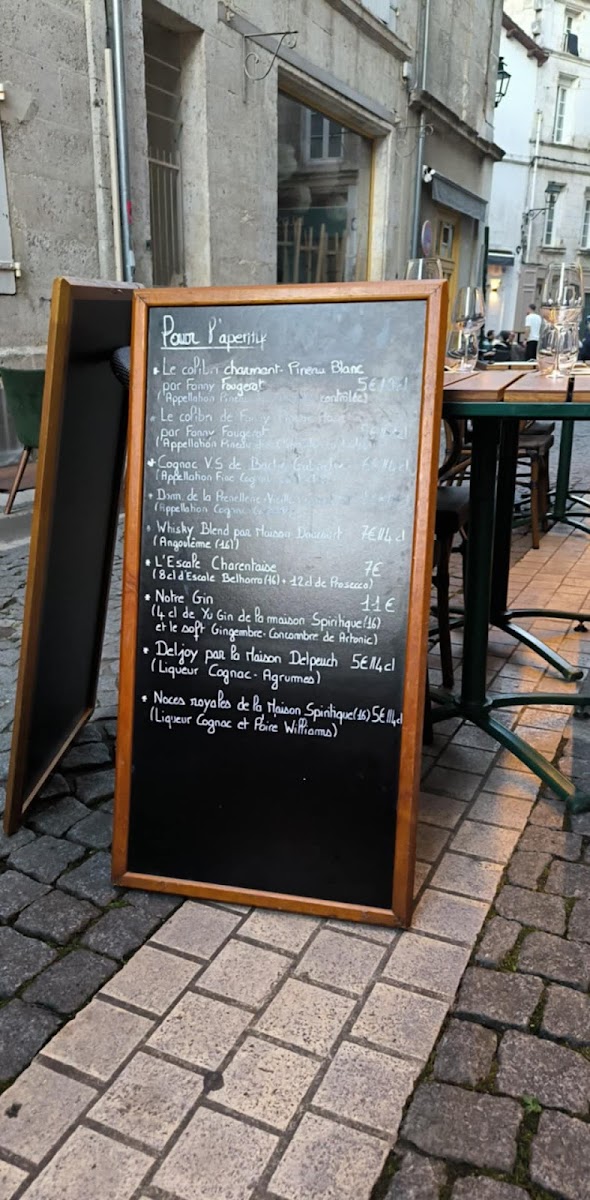 Pour l'aperitif
* Le colibri charmant - Pineau Blanc
par Fanny Fougerat 5€/
(Appellation Pineau contrôlée)
* Le colibri de
par Fanny Fougerat
(Appellation Pineau
* Cognac V.S de
(Appellation Fins
* Dom. de la
(Appellation Cognac
* Whisky Blend par Maison 7€/4cl
(Angoulême (16))
* L'Escale Charentaise 7€
(8cl d'Escale Belhorra(16) + 12cl de Prosecco)
* Notre Gin 11€
(4 cl de Yu Gin de la maison Spiritique(16)
et le soft Gingembre-Concombre de Artonic)
* Deljoy par la Maison Delpeuch 5€/4cl
(Liqueur Cognac - Agrumes)
* Noces royales de la Maison Spiritique(16) 5€/4cl
(Liqueur Cognac et Poire Williams)